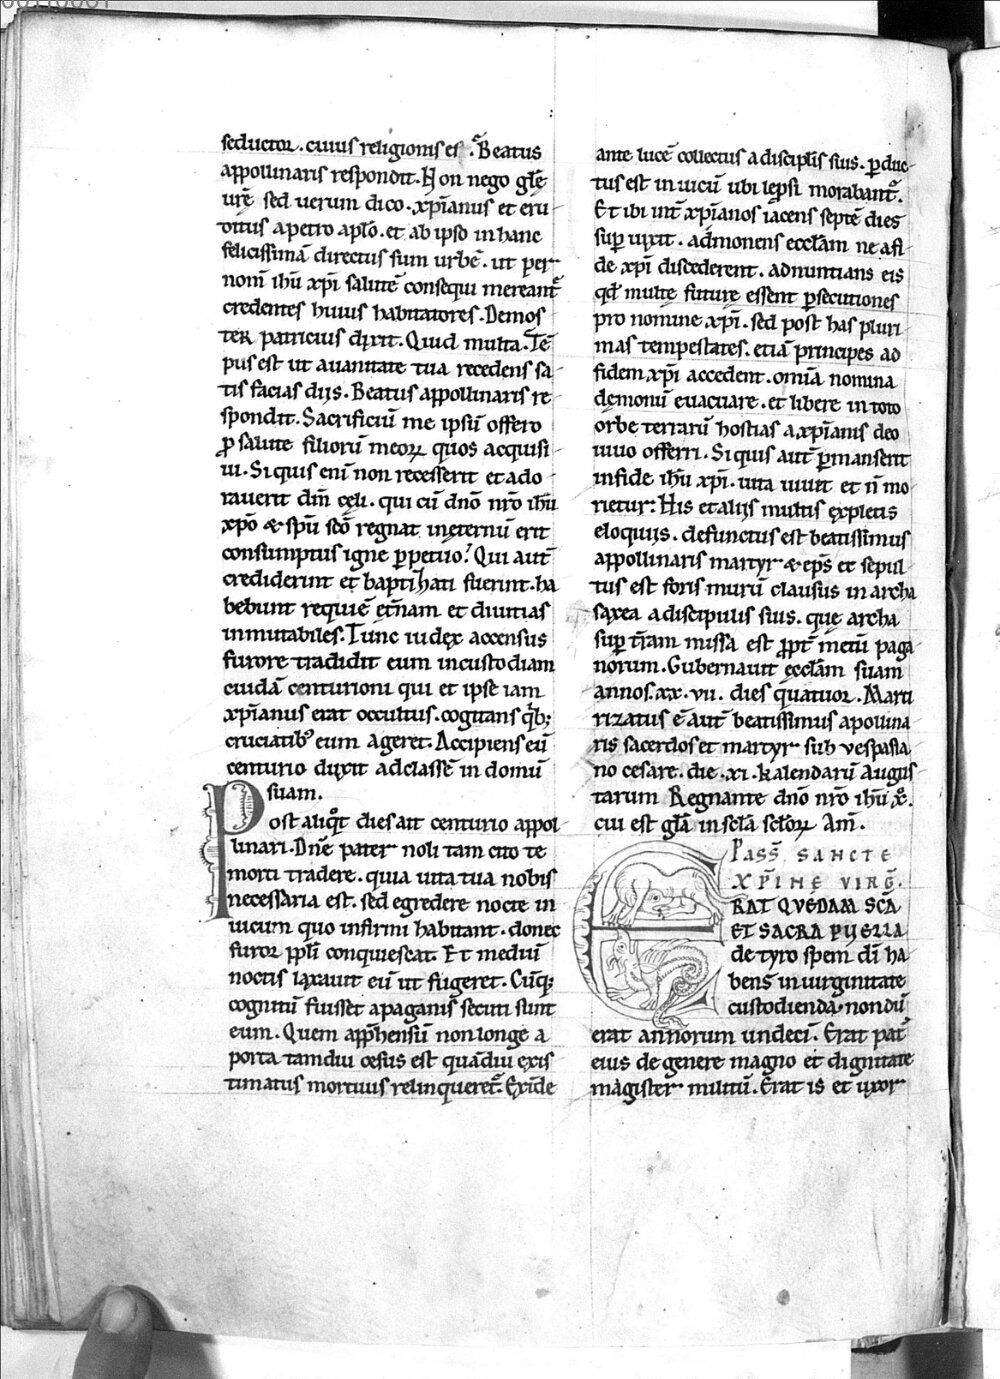 seductor. cuius religionis es. Beatus
appollinaris respondit. Non nego glę
urę̄ sed uerum dico. xp̄ianus et eru
ditus a petro aplō. et ab ipso in hanc
felicissimā directus sum urbē. ut per
nom̄ ihū xp̄i salutē consequi mereant᷑
credentes huius habitatores. Demos
ter patricius dixit. Quid multa. Tē
pus est ut a uanitate tua recedens sa
tis facias diis. Beatus appollinaris re
spondit. Sacrificiū me ipsū offero
ꝓ salute filiorū meoꝝ quos acquisi
ui. Si quis eni non recesserit et ado
rauerit dm̄ cęli. qui cū dnō nrō ihū
xp̄o & spū scō regnat in ęternū erit
consumptus igne ꝑpetuo. Qui aut̄
crediderint et baptizati fuerint. ha
bebunt requiē et̄nam et diuitias
inmutabiles. Tunc iudex accensus
furore tradidit eum in custodiam
cuidā centurioni qui et ipse iam
xp̄ianus erat occultus. cogitans qb;
cruciatib᷒ eum ageret. Accipiens eū
centurio duxit ad classē in domū
suam.
Post aliqt᷑ dies ait centurio appol
linari. Dn̄e pater noli tam cito te
morti tradere. quia uita tua nobis
necessaria est. sed egredere nocte in
uicum quo infirmi habitant. donec
furor ppl̄i conquiescat. Et mediū
noctis laxauit eū ut fugeret. Cūq;
cognitū fuisset a paganis secuti sunt
eum. Quem apphensū non longe a
porta tamdiu cesus est quādiu exis
timatus mortuus relinqueret᷑. Exīde
ante lucē collectus a disciplīs suis. ꝑduc
tus est in uicū ubi lepsi morabant᷑.
Et ibi int̄ xp̄ianos iacens septē dies
sup̄ uixit. admonens eccl̄am ne a fi
de xp̄i discederent. adnuntians eis
qd̄ multe future essent ꝑsecutiones
pro nomine xp̄i. sed post has pluri
mas tempestates. etiā principes ad
fidem xp̄i accedent. omīa nomina
demoniū euacuare. et libere in toto
orbe terrarū hostias a xp̄ianis deo
uiuo offerri. Si quis aut̄ ꝑmanserit
in fide ihū xp̄i. uita uiuit et n̄ mo
rietur. His et aliis multis expletis
eloquiis. defunctus est beatissimus
appollinaris martyr & ep̄s et sepul
tus est foris murū clausus in archa
saxea a discipulis suis. que archa
sup̄ t̄ram missa est ꝓpt̄ metū paga
norum. Gubernauit ęccl̄am suam
annos. xx. vii. dies quatuor. Marti
rizatus ē aut̄ beatissimus apollina
ris sacerdos et martyr sub vespasia
no cesare. die. xi. kalendarū Augus
tarum Regnante dnō nrō ihū xp̄o.
cui est glā in sclā scloꝝ Am̄.
PASS̄ SANCTE
XP̄INE VIRG̅.
ERAT QVEDAM SCĀ
ET SACRA PUELLA
de tyro spem dī ha
bens in uirginitate
custodienda. nondū
erat annorum undecī. Erat pat᷑
eius de genere magno et dignitate
magister militū. Erat is et uxor